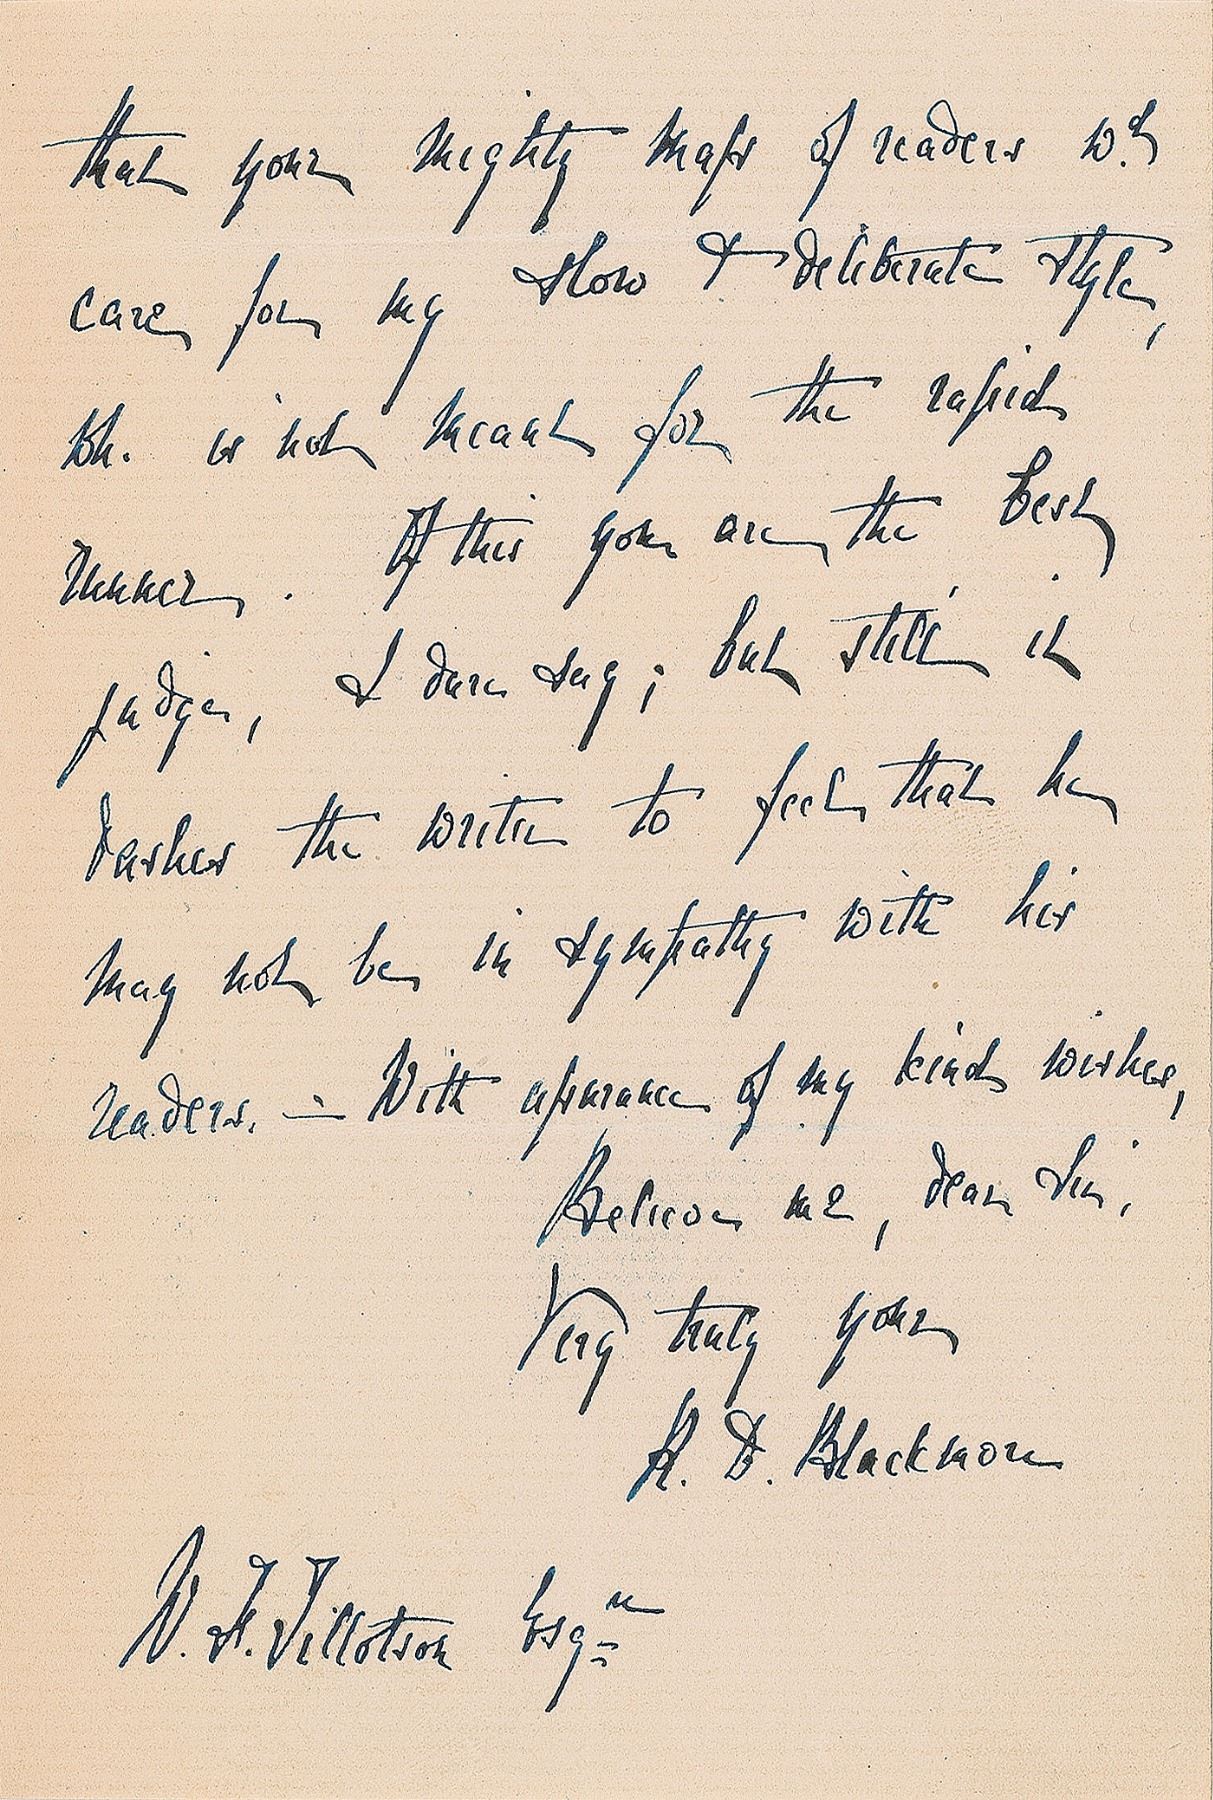 that your mighty mass of readers wd
care for my slow & deliberate style,
wh. is not meant for the rapid
runner. Of this you are the best
judge, I dare say; but still it
dashes the writer to feel that he
may not be in sympathy with his
readers. — With assurance of my kind wishes,
Believe me, dear Sir,
Very truly yours
R. D. Blackmore
W. F. Tillotson Esqre